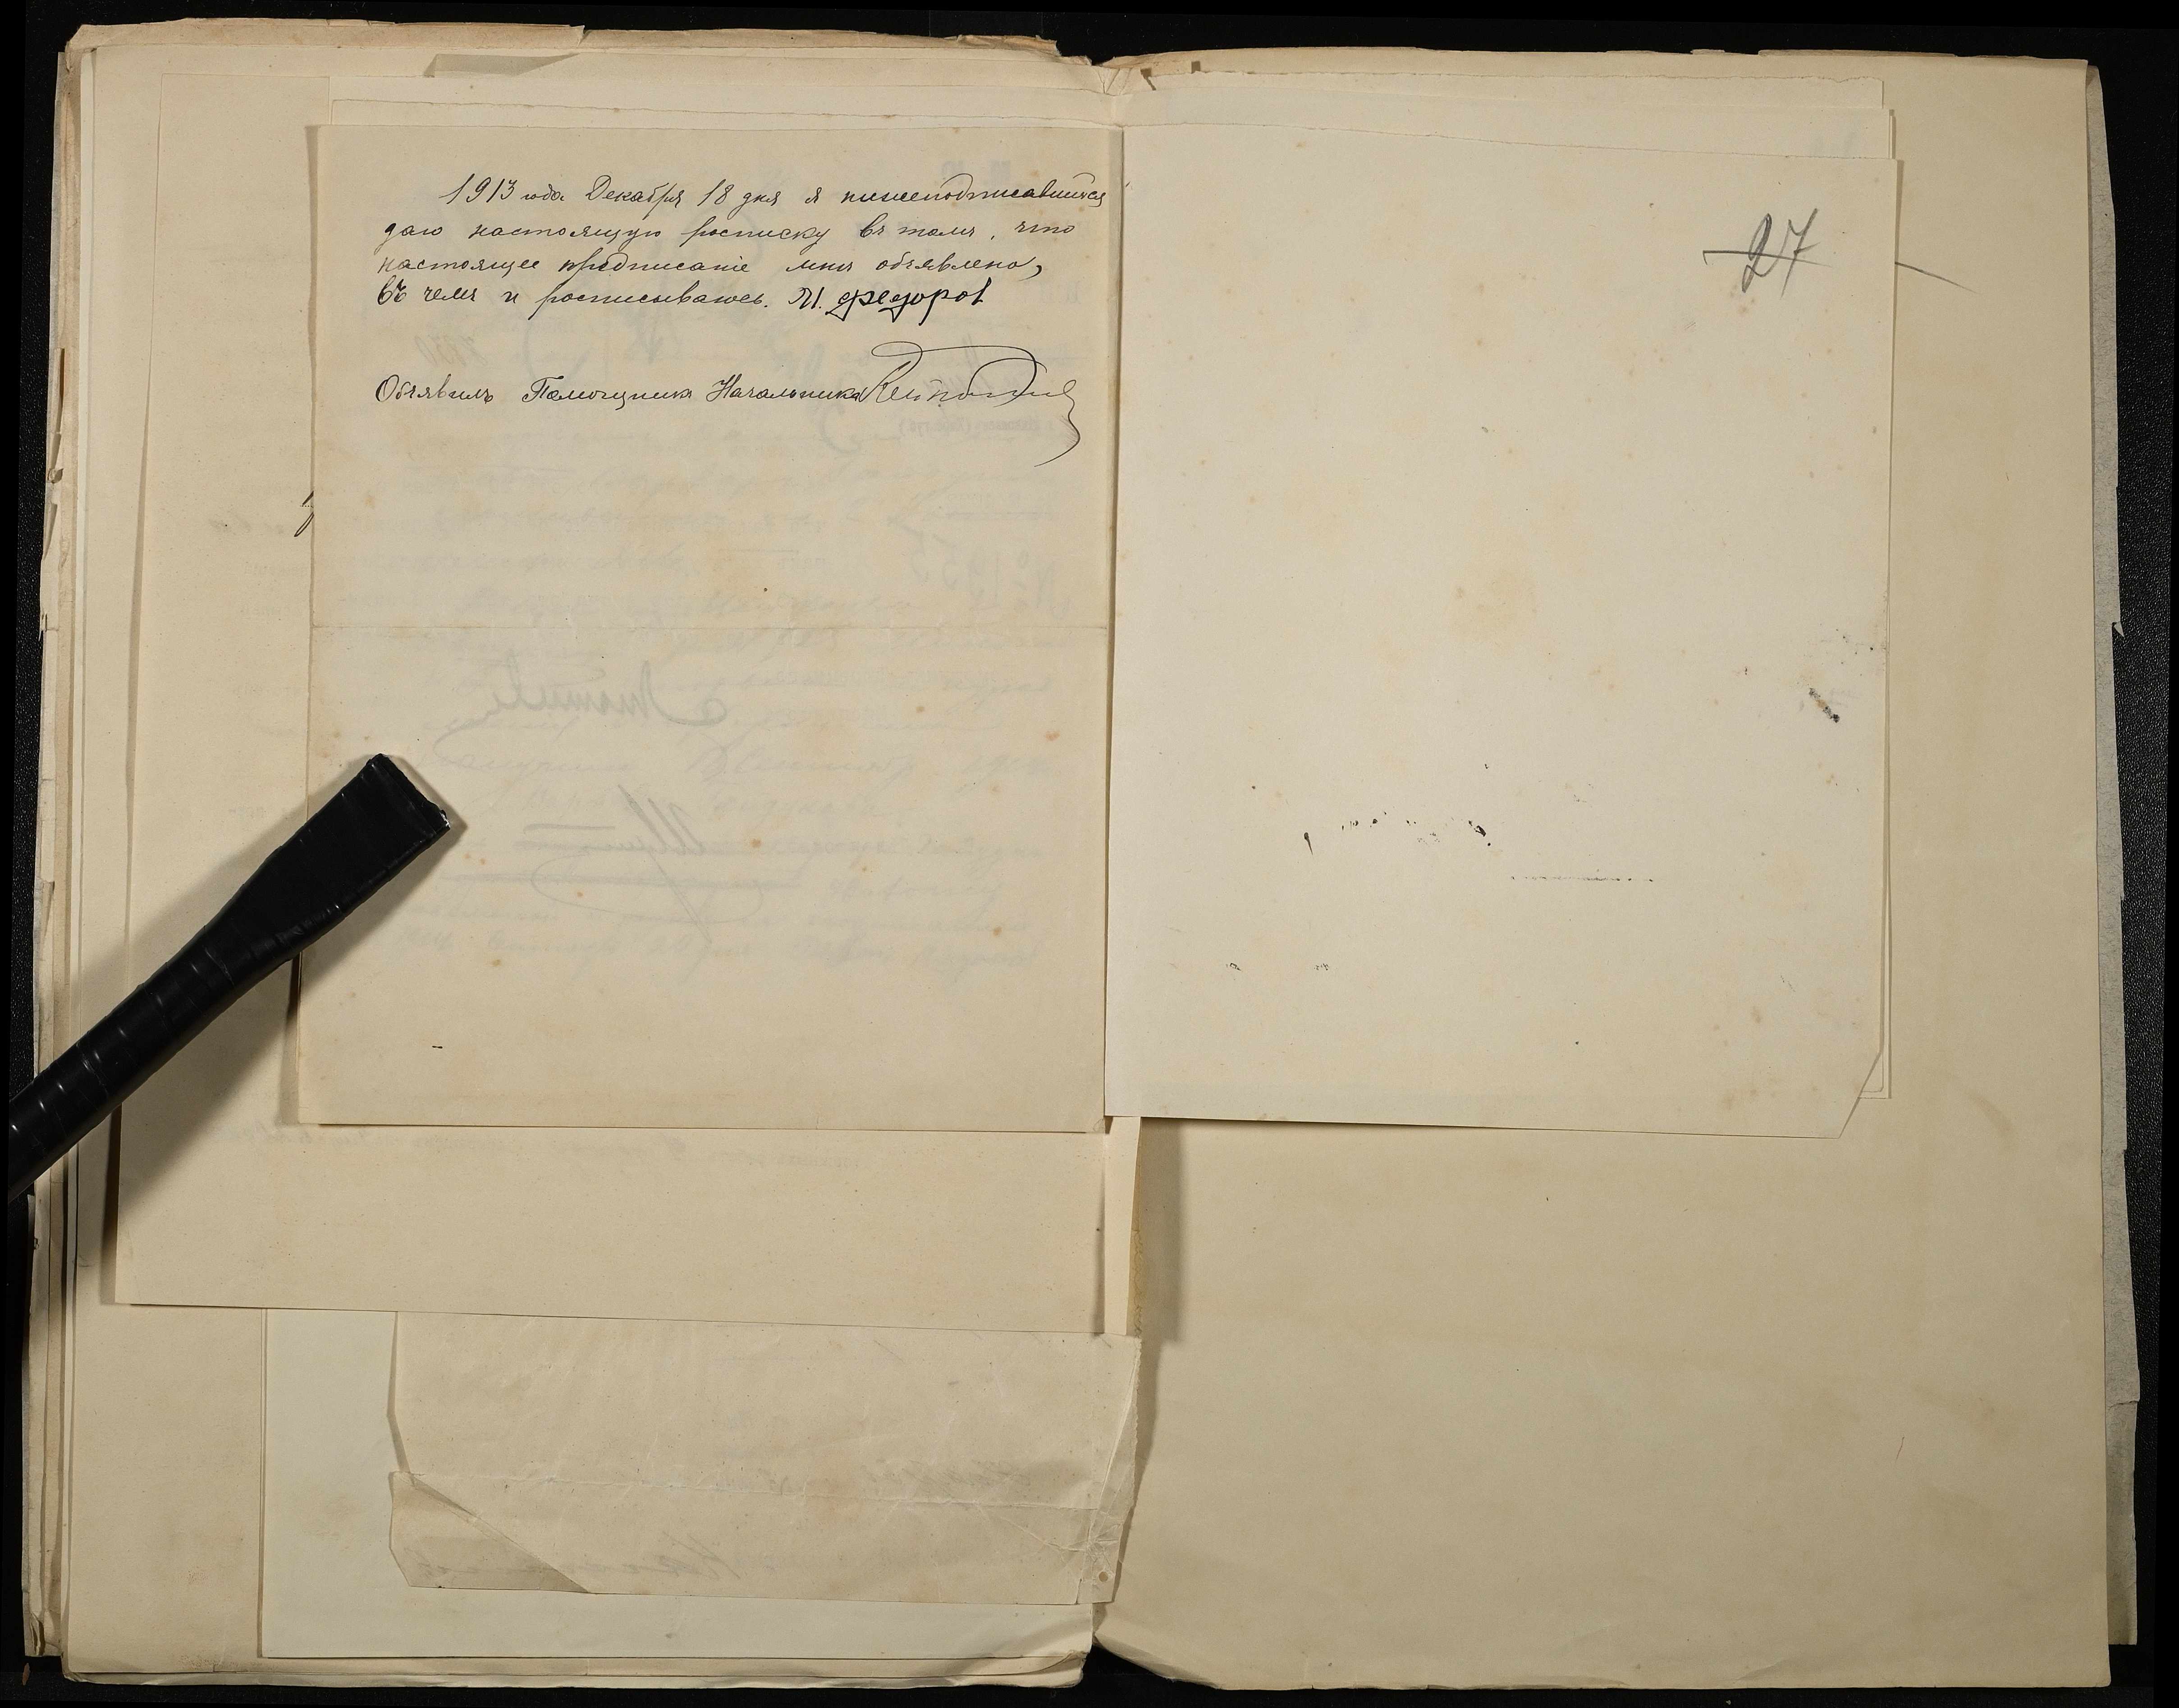 1913 года Декабря 18 дня я нижеподписавшійся
даю настоящую росписку въ томъ, что
настоящее предписаніе мнѣ объявлено,
въ чемъ и росписываюсь. М. Федоров
Объявилъ Помощникъ Начальника
27